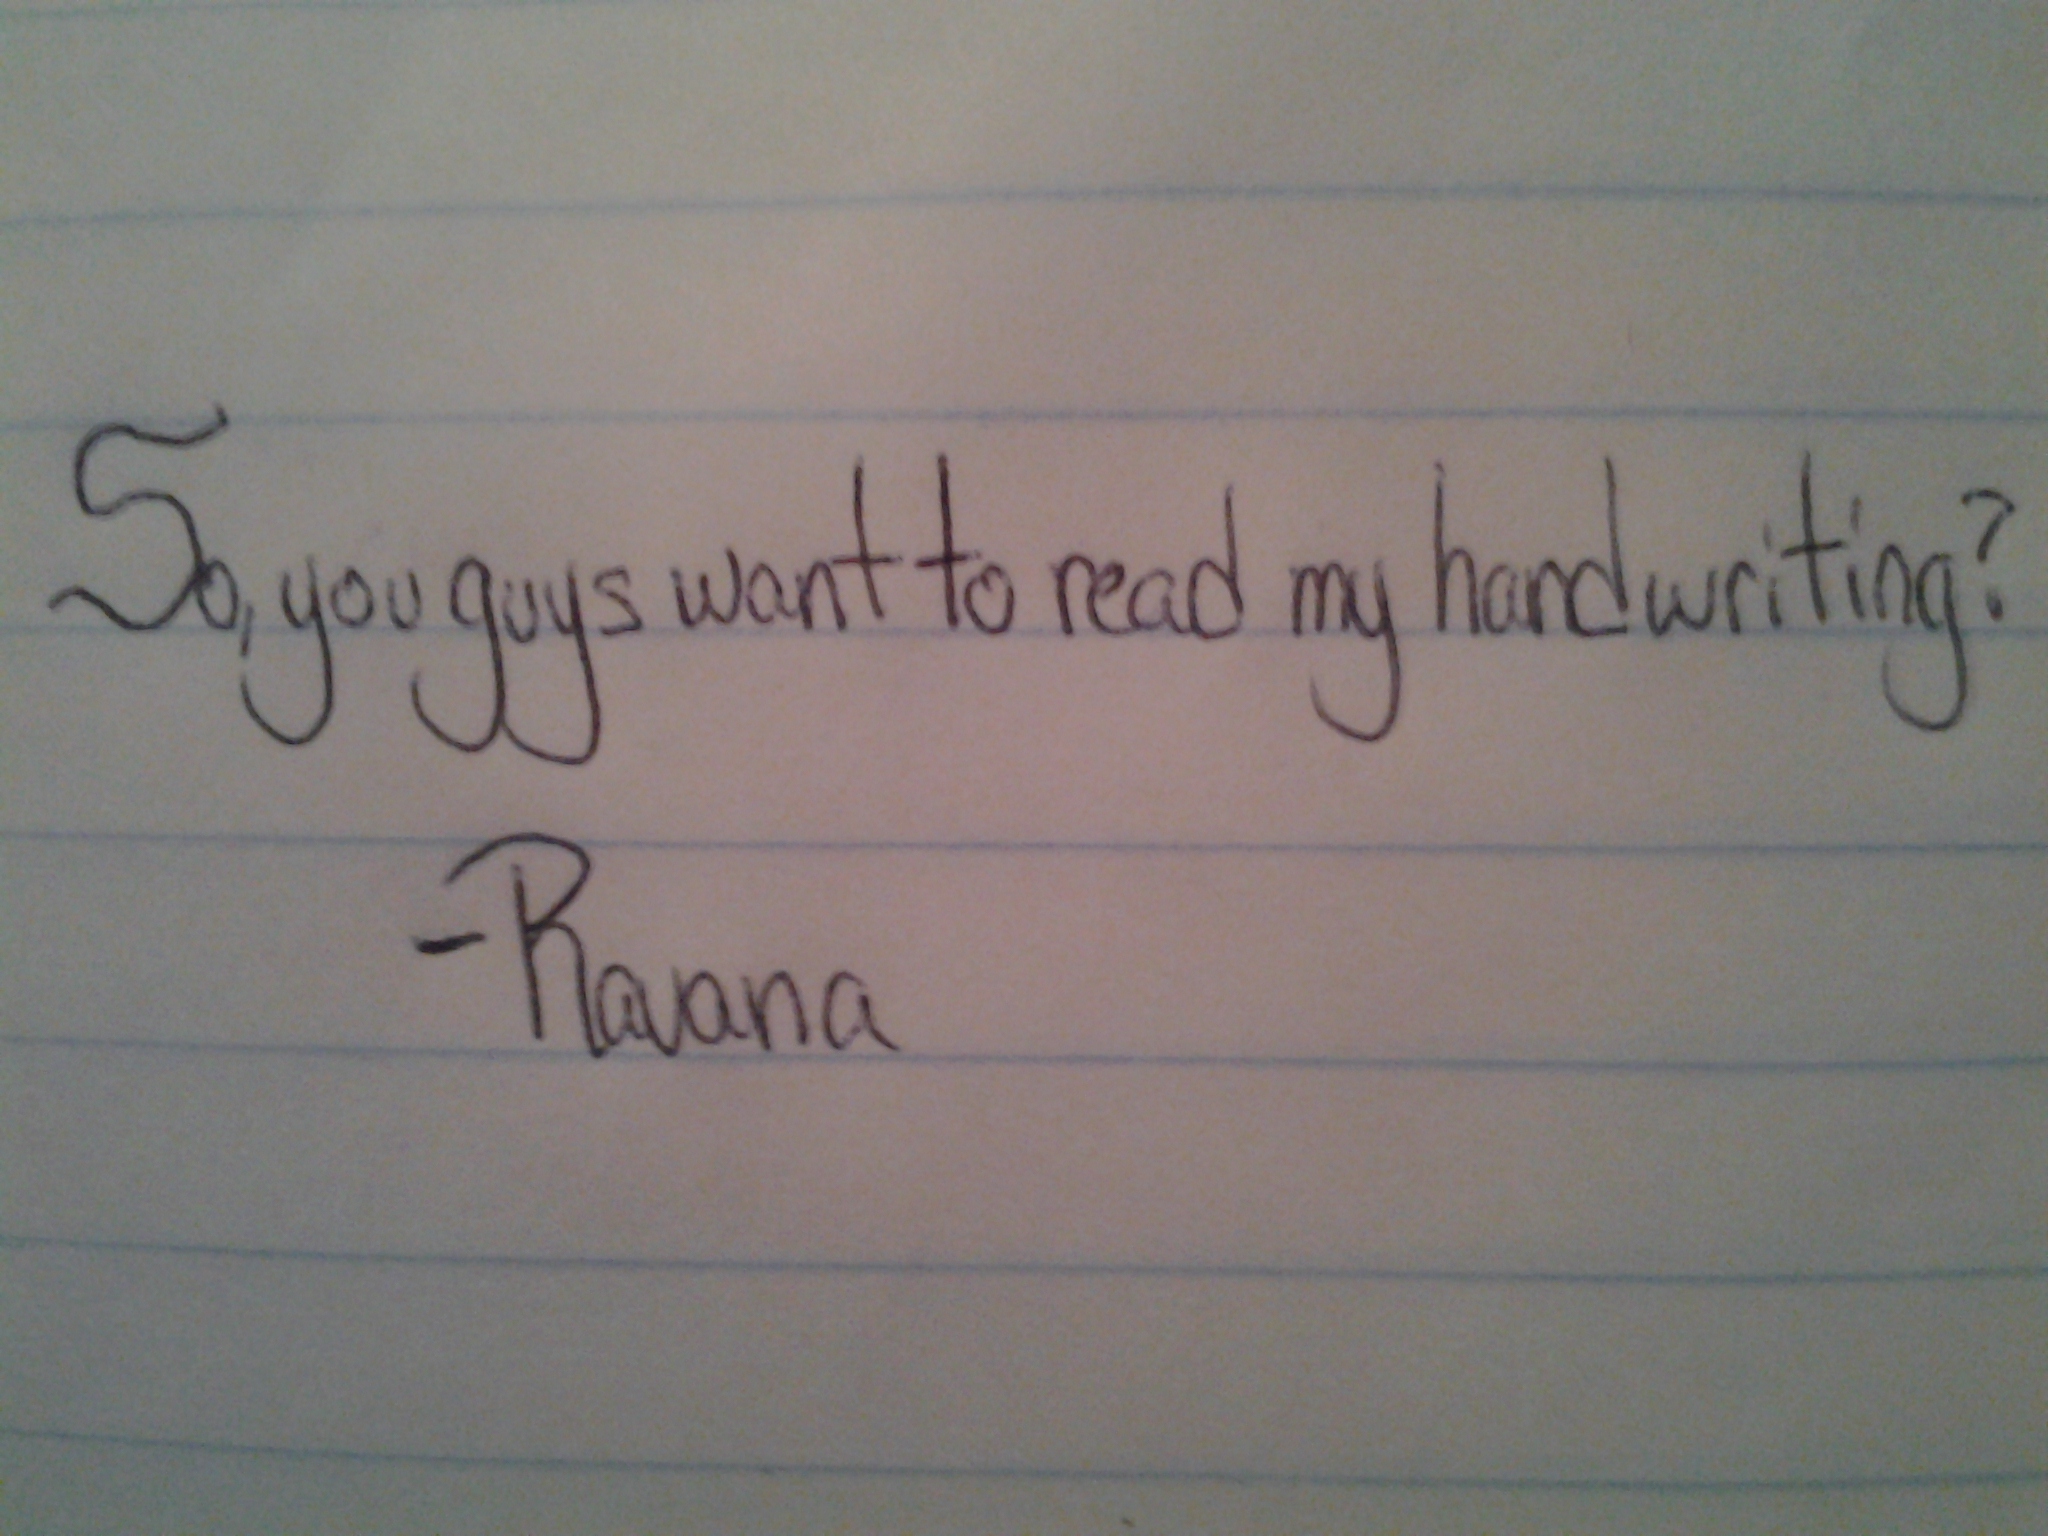 So, you guys want to read my handwriting?
-Ravana